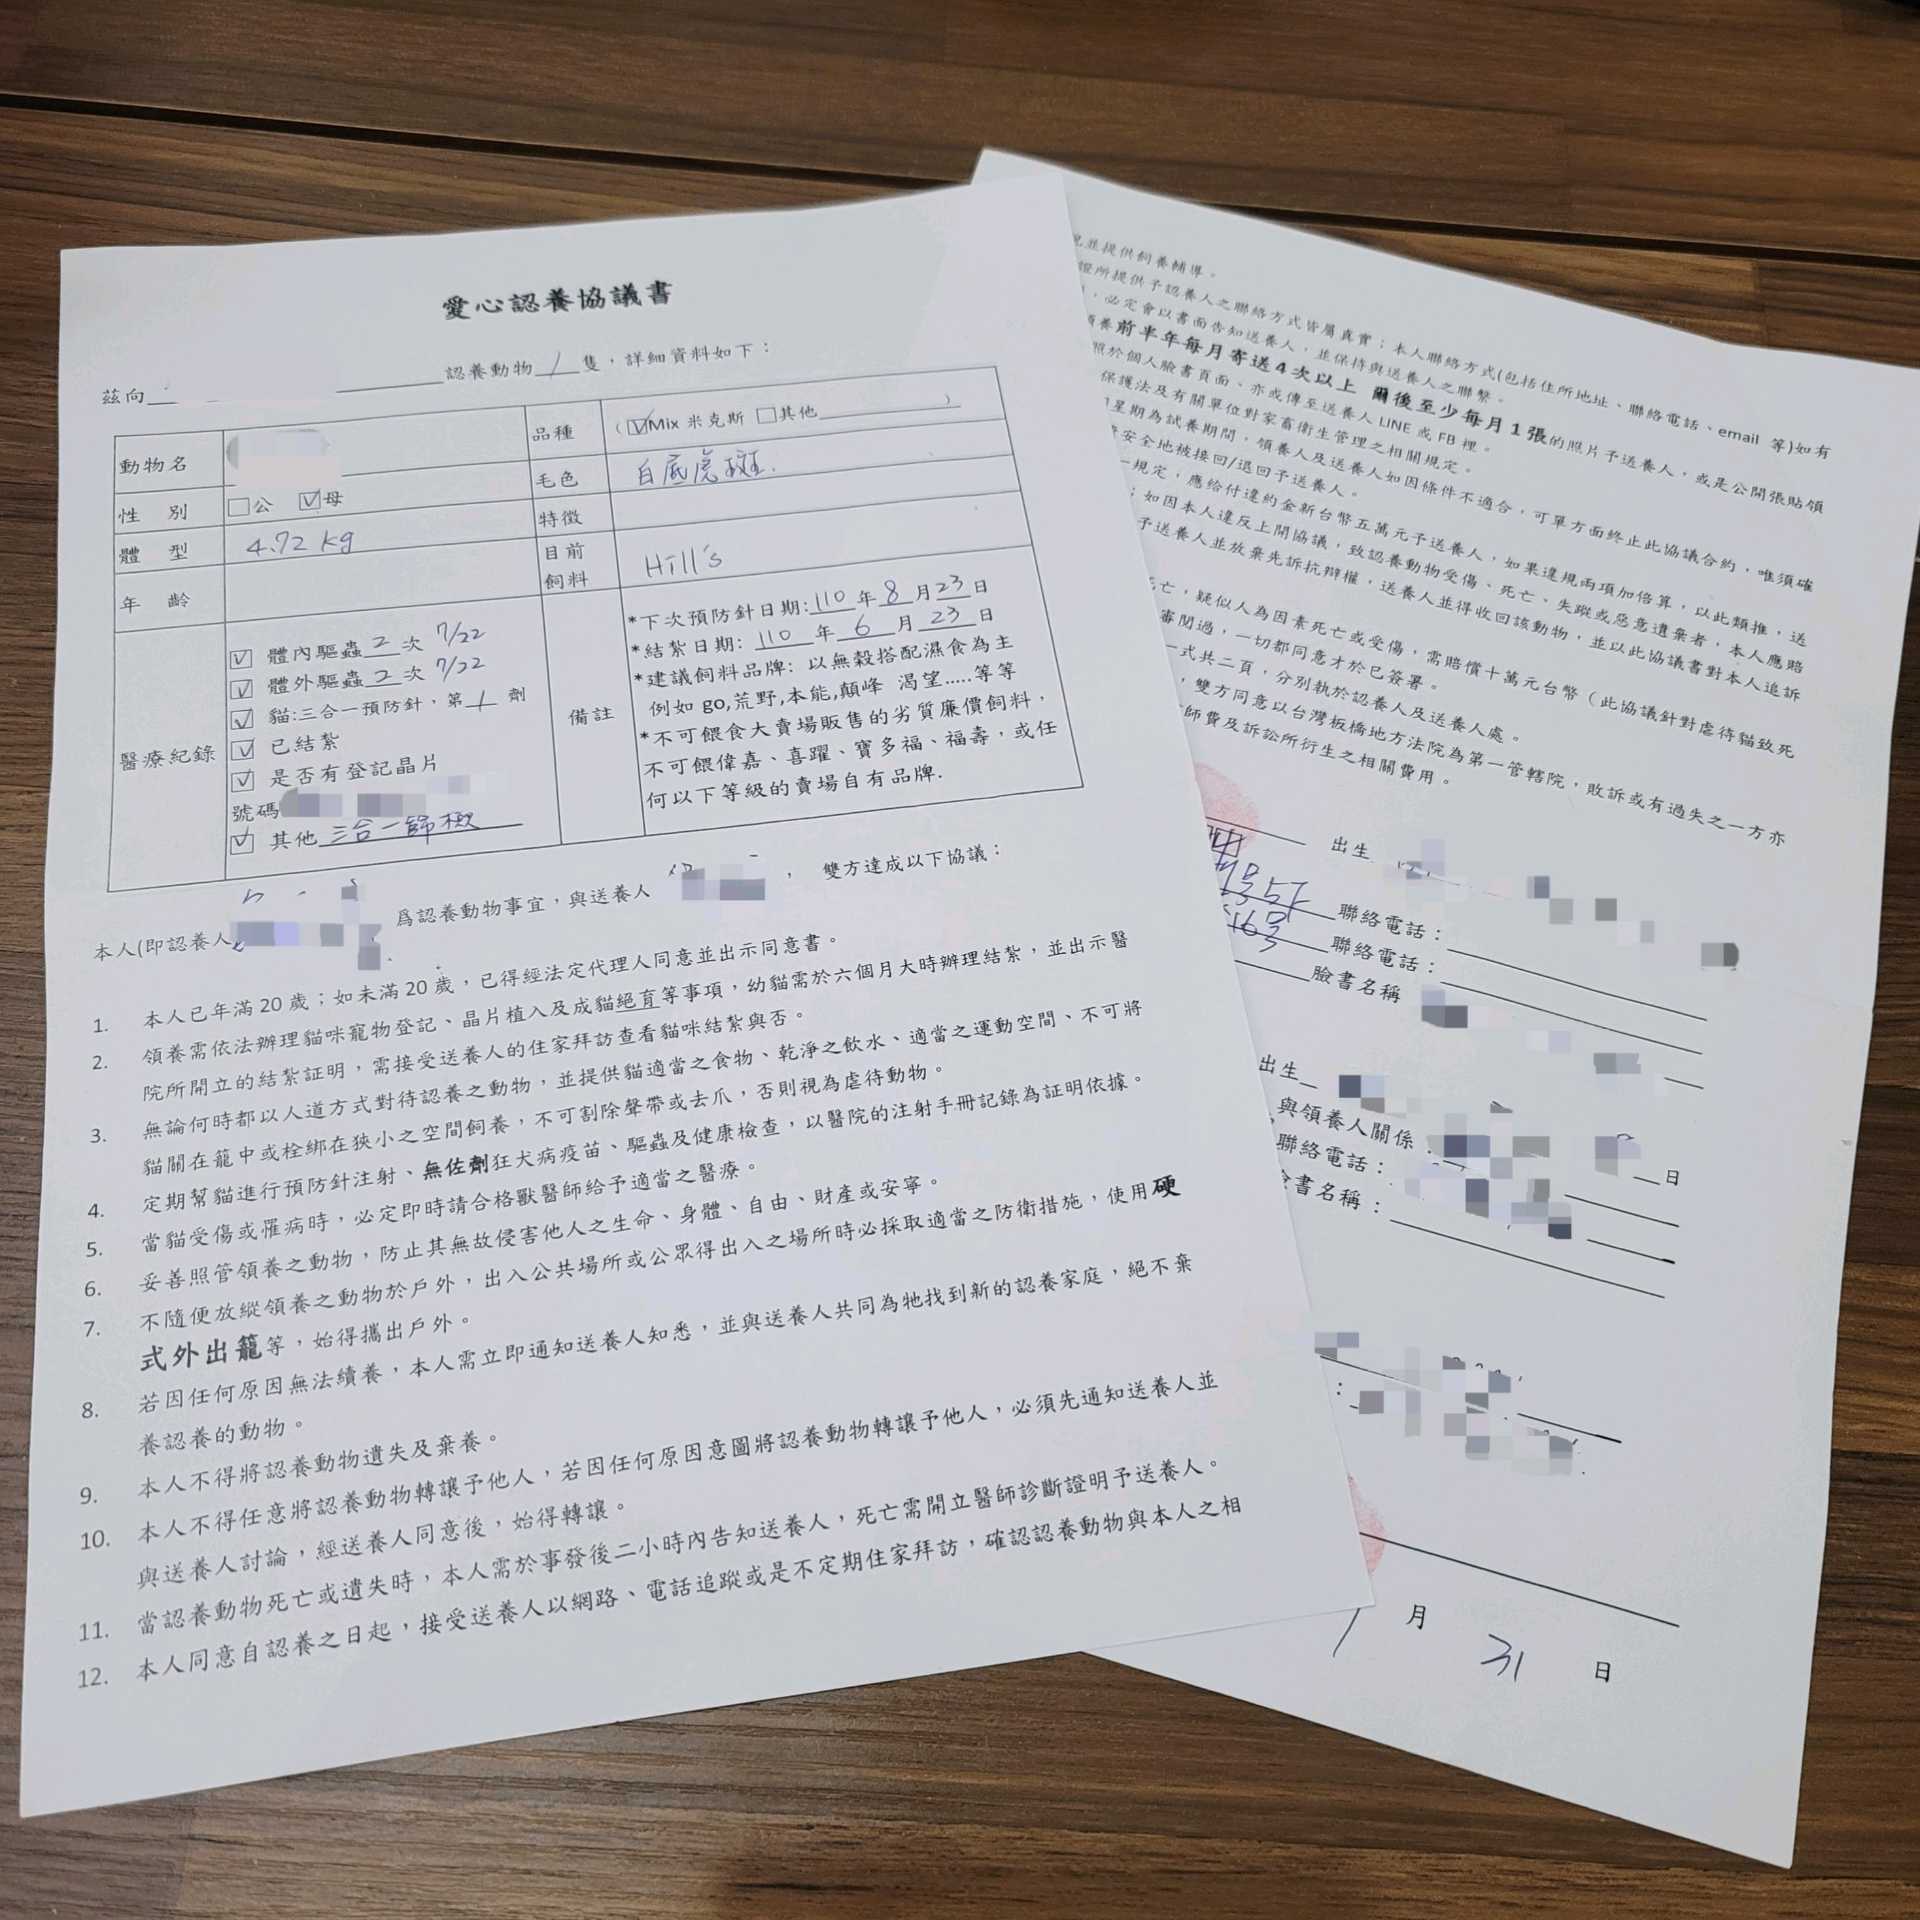 愛心認養協議書
茲向 認養動物 1 隻，詳細資料如下：
動物名
品種 (☑Mix 米克斯 □其他 )
性 別 □公 ☑母
毛色 白底虎斑.
體型 4.72 kg
特徵
年 齡
目前飼料 Hill's
醫療紀錄
☑ 體內驅蟲 2 次 7/22
☑ 體外驅蟲 2 次 7/22
☑ 貓:三合一預防針，第 1 劑
☑ 已結紮
☑ 是否有登記晶片
號碼
☑ 其他 三合一篩檢
備註
*下次預防針日期: 110 年 8 月 23 日
*結紮日期: 110 年 6 月 23 日
*建議飼料品牌: 以無穀搭配濕食為主
例如 go,荒野,本能,顛峰 渴望.....等等
*不可餵食大賣場販售的劣質廉價飼料，
不可餵偉嘉、喜躍、寶多福、福壽，或任
何以下等級的賣場自有品牌.
本人(即認養人 爲認養動物事宜，與送養人 ， 雙方達成以下協議：
1. 本人已年滿 20 歲；如未滿 20 歲，已得經法定代理人同意並出示同意書。
2. 領養需依法辦理貓咪寵物登記、晶片植入及成貓絕育等事項，幼貓需於六個月大時辦理結紮，並出示醫
院所開立的結紮証明，需接受送養人的住家拜訪查看貓咪結紮與否。
3. 無論何時都以人道方式對待認養之動物，並提供貓適當之食物、乾淨之飲水、適當之運動空間、不可將
貓關在籠中或栓綁在狹小之空間飼養，不可割除聲帶或去爪，否則視為虐待動物。
4. 定期幫貓進行預防針注射、無佐劑狂犬病疫苗、驅蟲及健康檢查，以醫院的注射手冊記錄為証明依據。
5. 當貓受傷或罹病時，必定即時請合格獸醫師給予適當之醫療。
6. 妥善照管領養之動物，防止其無故侵害他人之生命、身體、自由、財產或安寧。
7. 不隨便放縱領養之動物於戶外，出入公共場所或公眾得出入之場所時必採取適當之防衛措施，使用硬
式外出籠等，始得攜出戶外。
8. 若因任何原因無法續養，本人需立即通知送養人知悉，並與送養人共同為牠找到新的認養家庭，絕不棄
養認養的動物。
9. 本人不得將認養動物遺失及棄養。
10. 本人不得任意將認養動物轉讓予他人，若因任何原因意圖將認養動物轉讓予他人，必須先通知送養人並
與送養人討論，經送養人同意後，始得轉讓。
11. 當認養動物死亡或遺失時，本人需於事發後二小時內告知送養人，死亡需開立醫師診斷證明予送養人。
12. 本人同意自認養之日起，接受送養人以網路、電話追蹤或是不定期住家拜訪，確認認養動物與本人之相
並提供飼養輔導。
證所提供予認養人之聯絡方式皆屬真實；本人聯絡方式(包括住所地址、聯絡電話、email 等)如有
，必定會以書面告知送養人，並保持與送養人之聯繫。
養前半年每月寄送 4 次以上 爾後至少每月 1 張的照片予送養人，或是公開張貼領
照於個人臉書頁面、亦或傳至送養人 LINE 或 FB 裡。
保護法及有關單位對家畜衛生管理之相關規定。
星期為試養期間，領養人及送養人如因條件不適合，可單方面終止此協議合約，唯須確
安全地被接回/退回予送養人。
一規定，應給付違約金新台幣五萬元予送養人，如果違規兩項加倍算，以此類推，送
；如因本人違反上開協議，致認養動物受傷、死亡、失蹤或惡意遺棄者，本人應賠
予送養人並放棄先訴抗辯權，送養人並得收回該動物，並以此協議書對本人追訴
死亡，疑似人為因素死亡或受傷，需賠償十萬元台幣（此協議針對虐待貓致死
審閱過，一切都同意才於已簽署。
一式共二頁，分別執於認養人及送養人處。
，雙方同意以台灣板橋地方法院為第一管轄院，敗訴或有過失之一方亦
師費及訴訟所衍生之相關費用。
出生
號5F 聯絡電話：
163 聯絡電話：
臉書名稱
出生
與領養人關係： 日
聯絡電話：
臉書名稱：
：
1 月 31 日